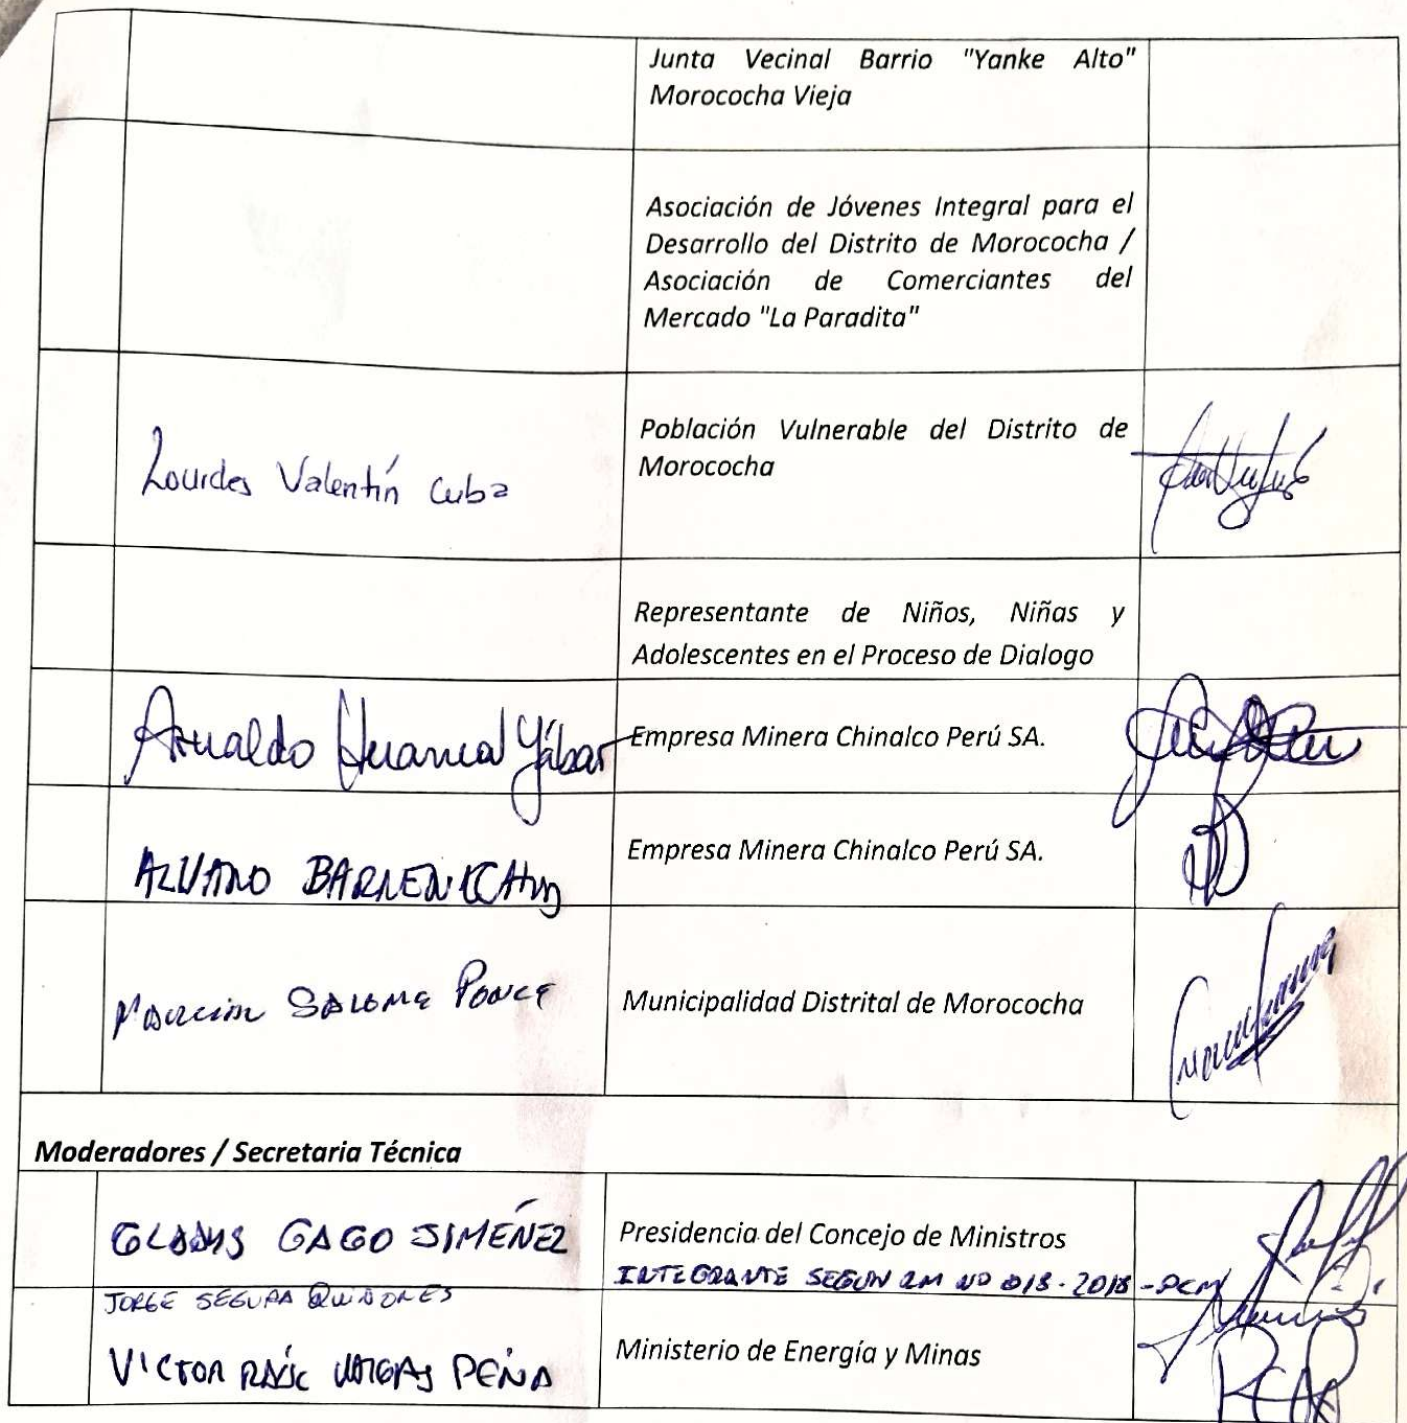 Junta Vecinal Barrio "Yanke Alto"
Morococha Vieja
Asociación de Jóvenes Integral para el
Desarrollo del Distrito de Morococha /
Asociación de Comerciantes del
Mercado "La Paradita"
Lourdes Valentín Cuba
Población Vulnerable del Distrito de
Morococha
Representante de Niños, Niñas y
Adolescentes en el Proceso de Dialogo
Arnaldo Huanca Yábar
Empresa Minera Chinalco Perú SA.
ALVARO BARRENECHEA
Empresa Minera Chinalco Perú SA.
SALOME PONCE
Municipalidad Distrital de Morococha
Moderadores / Secretaria Técnica
GLADYS GAGO JIMÉNEZ
Presidencia del Concejo de Ministros
INTEGRANTE SEGUN RM NO 018-2018-PCM
JORGE SEGURA QUIÑONES
VICTOR RAÚL VARGAS PEÑA
Ministerio de Energía y Minas